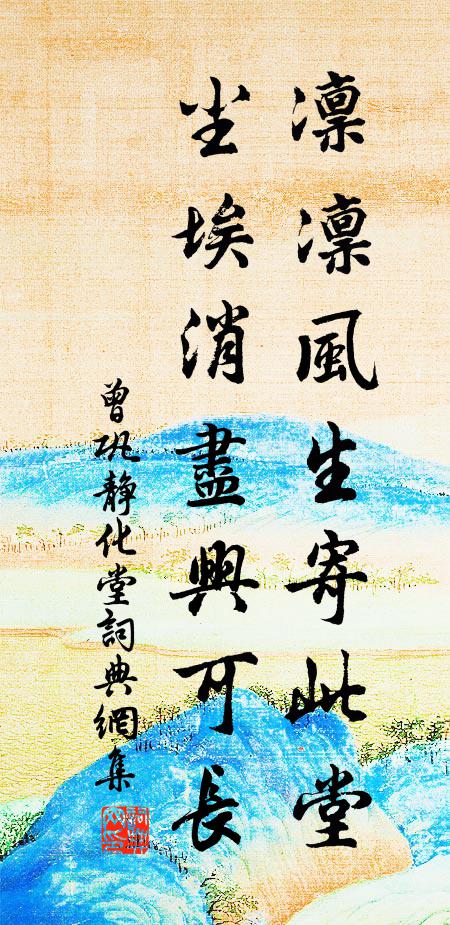 凛凛風生寄此堂
尘埃消盡興可長
曾巩静化堂詞典網集